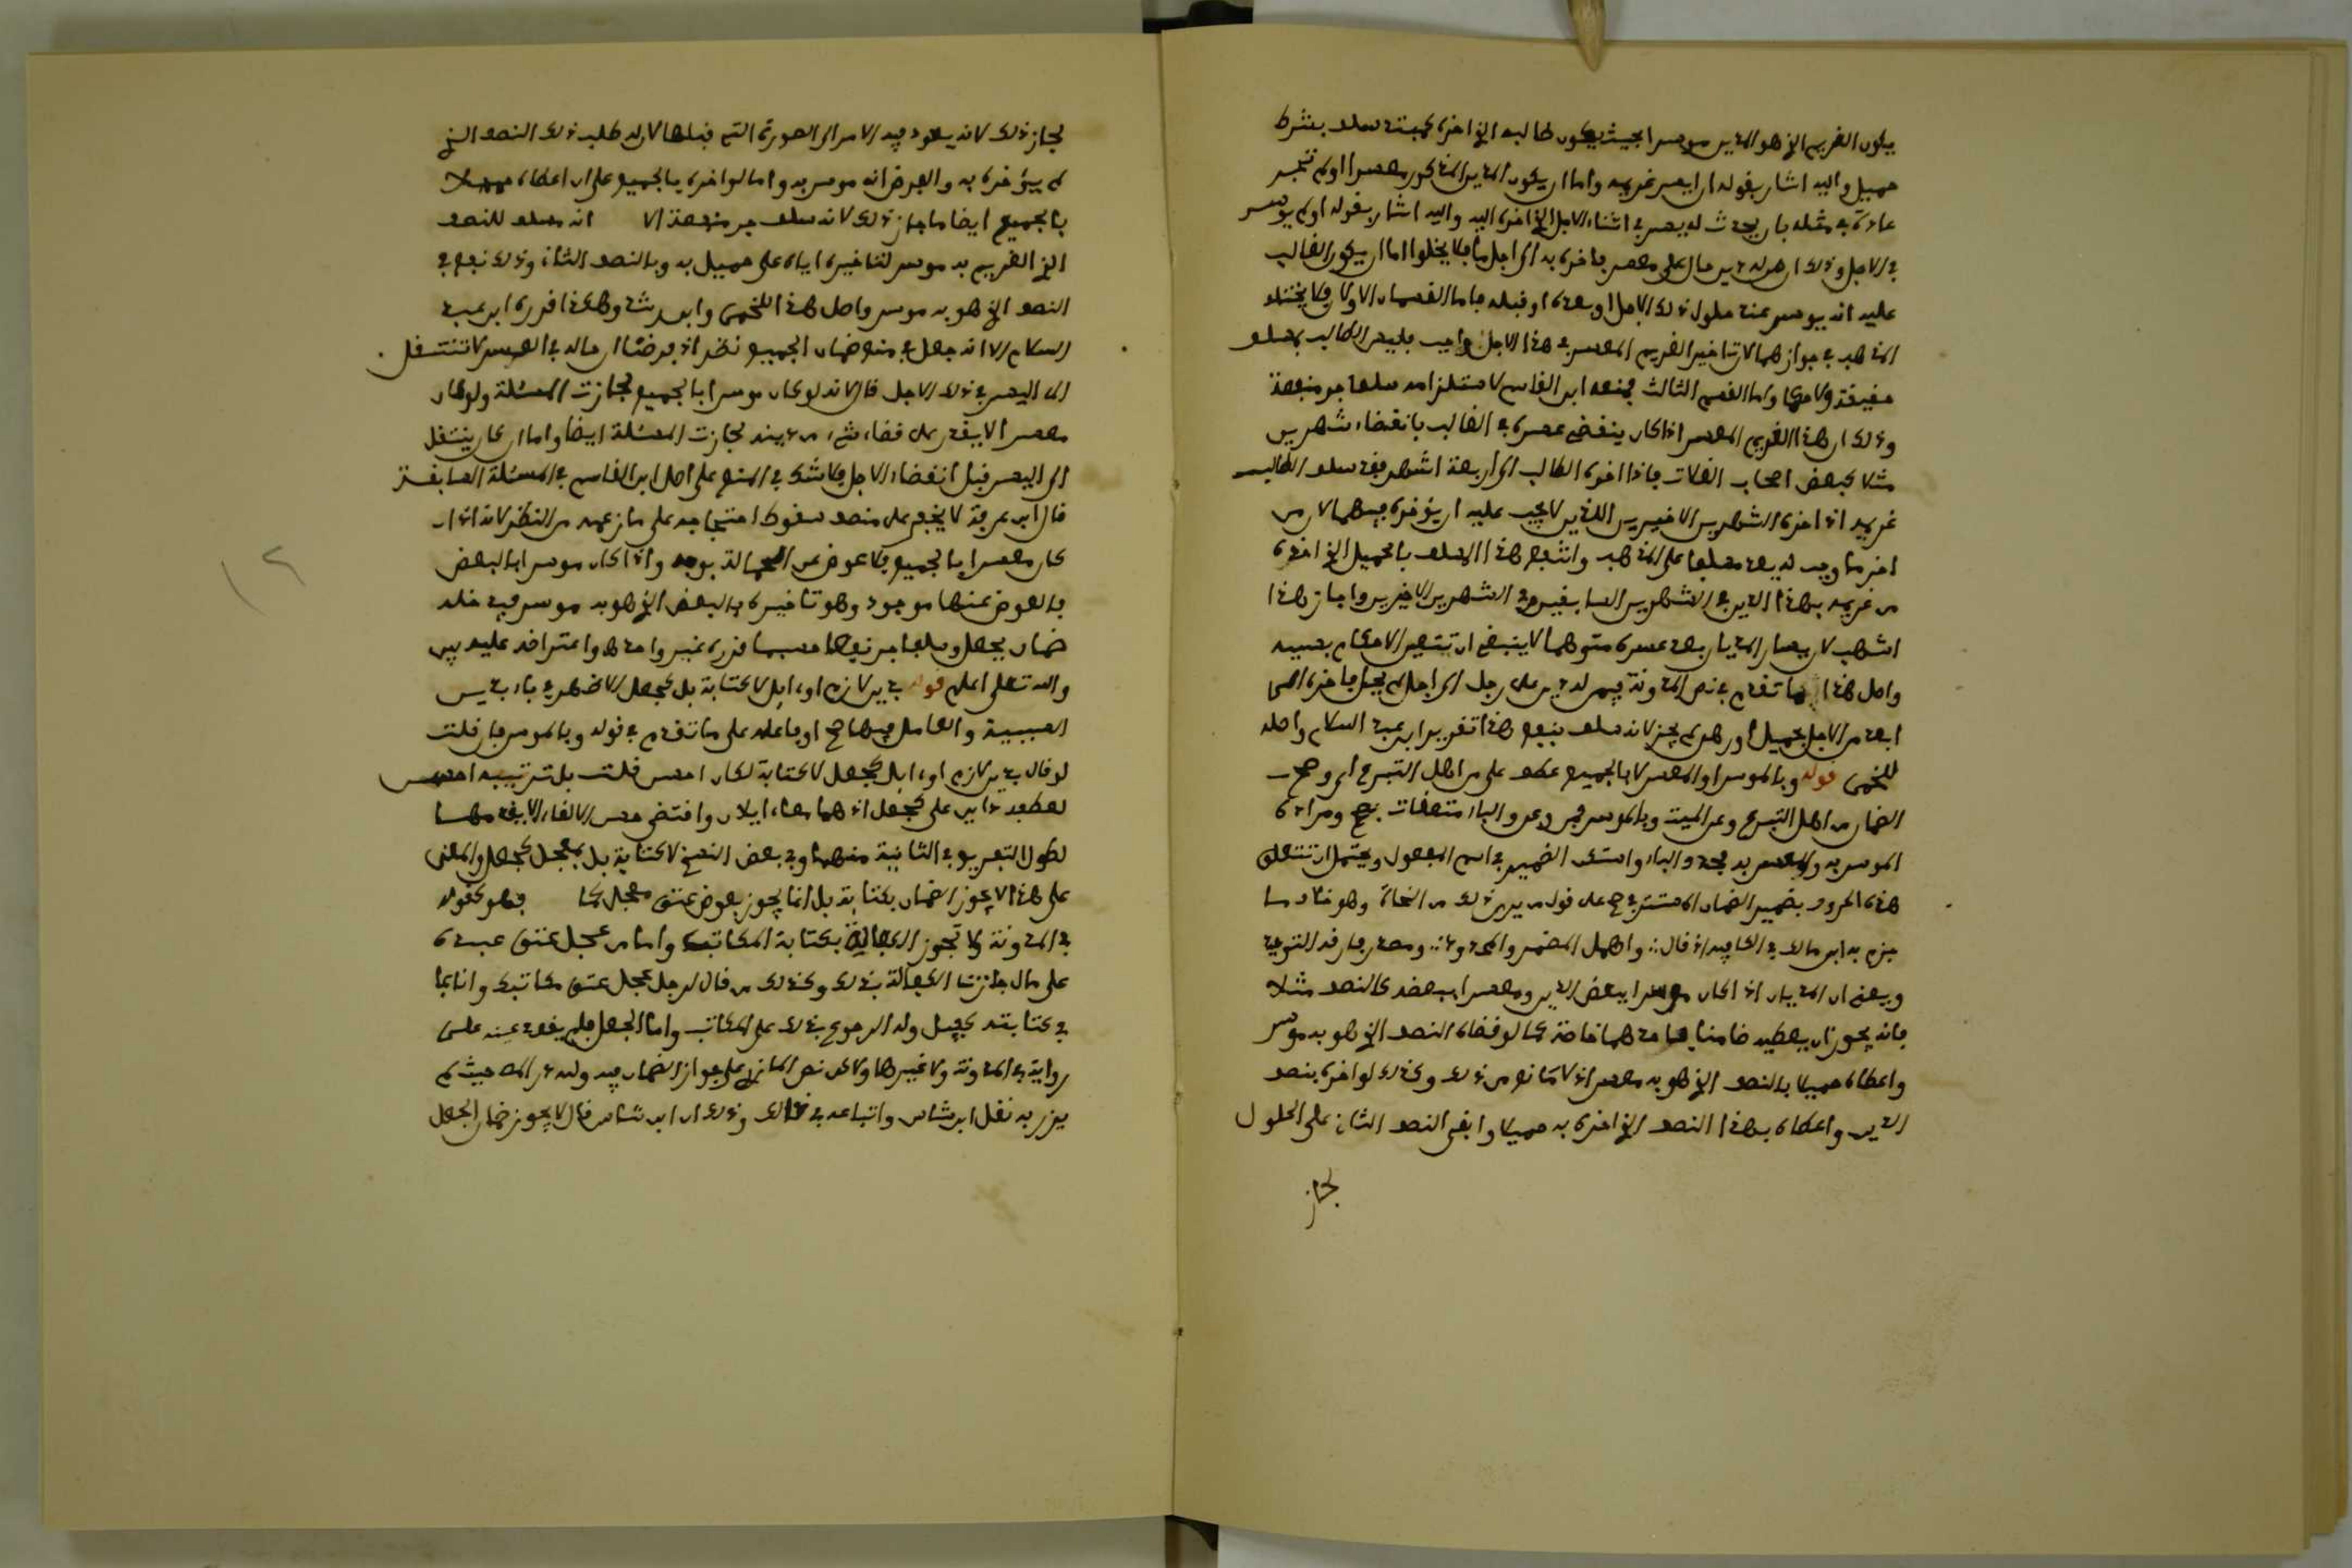 يكون الغريم الذي هو المدين موسرا بحيث يكون طالبه الذي اخره كمبتدء سلف بشرط
حميل واليه اشار بقوله ان ايسر غريمه واما ان يكون المدين المذكور معسرا ولم تجر
عادة في مثله بان يحدث له يسر في اثناء الاجل الذي اخره اليه واليه اشار بقوله او لم يوسر
في الاجل وذلك ان من له دين حال على معسر فاخره به الى اجل ما فلا يخلوا اما ان يكون الغالب
عليه انه يوسر عند حلول ذلك الاجل او بعده او قبله فاما القسمان الاولان فلا يختلف
المذهب في جوازهما لان تاخير الغريم المعسر في هذا الاجل واجب فليس الطالب بمسلف
حقيقة ولا حكما واما القسم الثالث فمنعه ابن القاسم لاستلزامه سلفا جر منفعة
وذلك ان هذا الغريم المعسر اذا كان ينقضي عسره في الغالب بانقضاء شهرين
مثلا كبعض اصحاب الغلات فاذا اخره الطالب الى اربعة اشهر فقد سلف الطالب
غريمه اذا اخره الشهرين الاخيرين اللذين لا يجب عليه ان يؤخره فيهما لان من
اخر ما وجب له يعد مسلفا على المذهب وانتفع هذا المسلف بالحميل الذي اخذه
من غريمه بهذا الدين في الشهرين السابقين وفي الشهرين الاخيرين واجاز هذا
اشهب لان يسار المديان بعد عسره متوهما لا ينبغي ان تتغير الاحكام بسببه
واصل هذا ما تقدم في نص المدونة فيمن له دين على رجل الى اجل لم يحل فاخره الى
ابعد من الاجل بحميل او رهن لم يجز لانه سلف بنفع هذا تقرير ابن عبد السلام واصله
للخمي قوله وبالموسر او المعسر لا بالجميع عطف على من اهل التبرع اي وصح
الضمان من اهل التبرع وعن الميت وبالموسر فمن وعن والباء متعلقات بصح ومراده
الموسر به والمعسر به فحذف الباء واستتر الضمير في اسم المفعول ويحتمل ان تتعلق
هذه الحروف بضمير الضمان المستتر في صح على قول من يرى ذلك من النحاة وهو خلاف ما
جزم به ابن مالك في الكافية اذ قال واهمل المضمر والمحدود ومصدر فارقه التوحيد
ويعني ان المديان اذا كان موسرا ببعض الدين ومعسرا ببعضه كالنصف مثلا
فانه يجوز ان يعطيه ضامنا باحدهما خاصة كما لو قضاه النصف الذي هو به موسر
واعطاه حميلا بالنصف الذي هو به معسر اذ لا مانع من ذلك وكذلك لو اخره بنصف
الدين واعطاه بهذا النصف الذي اخره به حميلا وابقى النصف الثاني على الحلول
لجاز
لجاز ذلك لانه يعود فيه الامر الى الصورة التي قبلها لان له طلب ذلك النصف الذي
لم يؤخره به والفرض انه موسر به واما لو اخره بالجميع على ان اعطاه حميلا
بالجميع ايضا ما جاز ذلك لانه سلف جر منفعة الا انه مسلف للنصف
الذي الغريم به موسر لتاخيره اياه على حميل به وبالنصف الثاني وذلك نفع في
النصف الذي هو به موسر واصل هذا للخمي وابن رشد وهكذا قرره ابن عبد
السلام الا انه جعل في منع ضمان الجميع نظر اذ فرضنا ان حاله في العسر لا تنتقل
الى اليسر في ذلك الاجل قال لانه لو كان موسرا بالجميع لجازت المسئلة ولو كان
معسرا لا يقدر على قضاء شيء من دينه لجازت المسئلة ايضا واما ان كان ينتقل
الى اليسر قبل انقضاء الاجل فلا شك في المنع على اصل ابن القاسم في المسئلة السابقة
قال ابن عرفة لا يخفى على منصف سقوط احتجاجه على ما زعمه من النظر لانه اذا
كان معسرا بالجميع فلا عوض عن الحمالة بوجه واذا كان موسرا بالبعض
فالعوض عنها موجود وهو تاخيره بالبعض الذي هو به موسر فيدخله
ضمان بجعل وسلفا جر نفعا حسبما قرره غير واحد واعتراضه عليه بين
والله تعلى اعلم قوله بدين لازم او ايل لا كتابة بل كجعل الاضهر في باء بدين
السببية والعامل فيها صح او فاعله على ما تقدم في قوله وبالموسر فان قلت
لو قال بدين لازم او ايل كجعل لا كتابة لكان احسن قلت بل ترتيبه احسن
لعطفه دائن على كجعل اذ هما معا ايلان واقتضى حسن الالقاء الابقى مهما
لطول التفريع في الثانية منهما وفي بعض النسخ لا كتابة بل بمعجل كجعل والمعنى
على هذا لا يجوز الضمان بكتابة بل انما يجوز بعوض عتق معجل كما فهو كقوله
في المدونة ولا تجوز الكفالة بكتابة المكاتب واما من عجل عتق عبده
على مال جازت الكفالة بذلك وكذلك من قال لرجل عجل عتق مكاتبك وانا بما
في كتابته كفيل وله الرجوع بذلك على المكاتب واما الجعل فلم يقع عينه على
رواية في المدونة ولا غيرها ولا كن نص المازري على جواز الضمان فيه ولله در المص حيث لم
يغرر به نقل ابن شاس واتباعه في ذلك وذلك ان ابن شاس قال لا يجوز ضمان الجعل
١٢